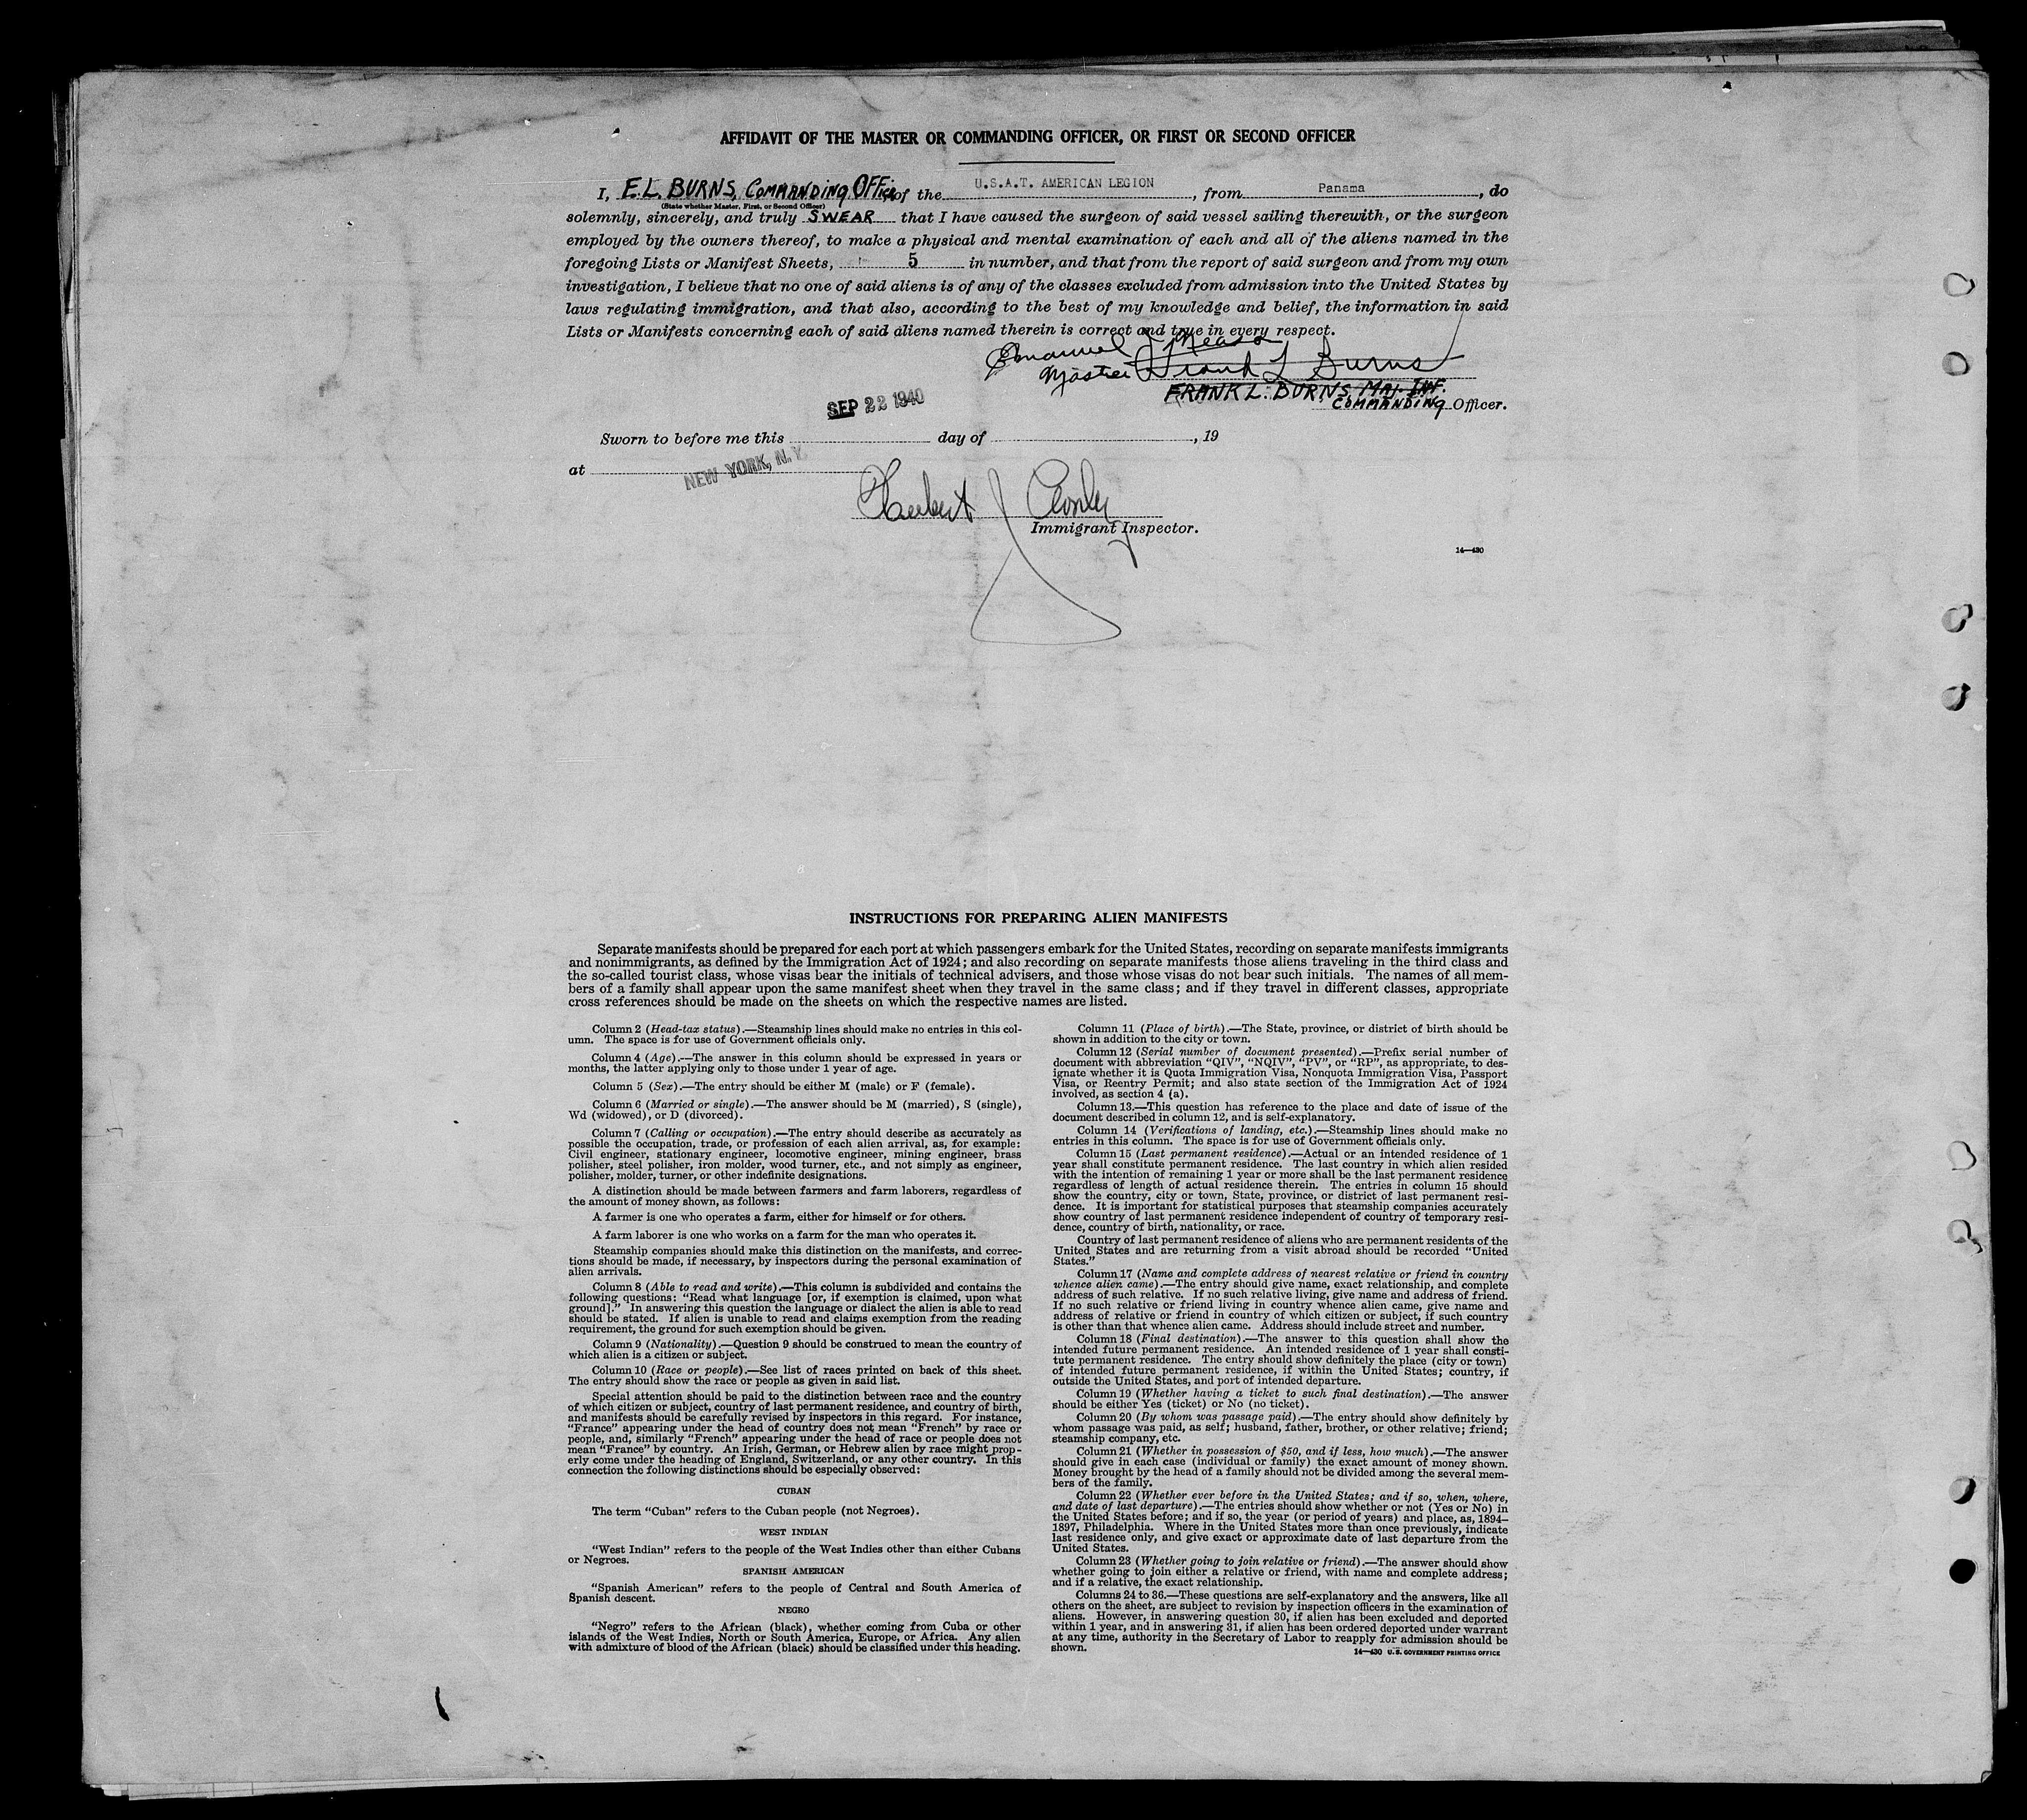 AFFIDAVIT OF THE MASTER OR COMMANDING OFFICER, OR FIRST OR SECOND OFFICER
I, E.L. BURNS, COMMANDING OFFicer of the U.S.A.T. AMERICAN LEGION, from Panama, do
(State whether Master, First, or Second Officer)
solemnly, sincerely, and truly SWEAR that I have caused the surgeon of said vessel sailing therewith, or the surgeon
employed by the owners thereof, to make a physical and mental examination of each and all of the aliens named in the
foregoing Lists or Manifest Sheets, 5 in number, and that from the report of said surgeon and from my own
investigation, I believe that no one of said aliens is of any of the classes excluded from admission into the United States by
laws regulating immigration, and that also, according to the best of my knowledge and belief, the information in said
Lists or Manifests concerning each of said aliens named therein is correct and true in every respect.
Emanuel
Master Frank L Burns
FRANK L. BURNS, MAJ. INF.
COMMANDING Officer.
SEP 22 1940
Sworn to before me this day of , 19
at NEW YORK, N.Y.
Immigrant Inspector.
14—430
INSTRUCTIONS FOR PREPARING ALIEN MANIFESTS
Separate manifests should be prepared for each port at which passengers embark for the United States, recording on separate manifests immigrants
and nonimmigrants, as defined by the Immigration Act of 1924; and also recording on separate manifests those aliens traveling in the third class and
the so-called tourist class, whose visas bear the initials of technical advisers, and those whose visas do not bear such initials. The names of all mem-
bers of a family shall appear upon the same manifest sheet when they travel in the same class; and if they travel in different classes, appropriate
cross references should be made on the sheets on which the respective names are listed.
Column 2 (Head-tax status).—Steamship lines should make no entries in this col-
umn. The space is for use of Government officials only.
Column 4 (Age).—The answer in this column should be expressed in years or
months, the latter applying only to those under 1 year of age.
Column 5 (Sex).—The entry should be either M (male) or F (female).
Column 6 (Married or single).—The answer should be M (married), S (single),
Wd (widowed), or D (divorced).
Column 7 (Calling or occupation).—The entry should describe as accurately as
possible the occupation, trade, or profession of each alien arrival, as, for example:
Civil engineer, stationary engineer, locomotive engineer, mining engineer, brass
polisher, steel polisher, iron molder, wood turner, etc., and not simply as engineer,
polisher, molder, turner, or other indefinite designations.
A distinction should be made between farmers and farm laborers, regardless of
the amount of money shown, as follows:
A farmer is one who operates a farm, either for himself or for others.
A farm laborer is one who works on a farm for the man who operates it.
Steamship companies should make this distinction on the manifests, and correc-
tions should be made, if necessary, by inspectors during the personal examination of
alien arrivals.
Column 8 (Able to read and write).—This column is subdivided and contains the
following questions: “Read what language [or, if exemption is claimed, upon what
ground].” In answering this question the language or dialect the alien is able to read
should be stated. If alien is unable to read and claims exemption from the reading
requirement, the ground for such exemption should be given.
Column 9 (Nationality).—Question 9 should be construed to mean the country of
which alien is a citizen or subject.
Column 10 (Race or people).—See list of races printed on back of this sheet.
The entry should show the race or people as given in said list.
Special attention should be paid to the distinction between race and the country
of which citizen or subject, country of last permanent residence, and country of birth,
and manifests should be carefully revised by inspectors in this regard. For instance,
“France” appearing under the head of country does not mean “French” by race or
people, and, similarly “French” appearing under the head of race or people does not
mean “France” by country. An Irish, German, or Hebrew alien by race might prop-
erly come under the heading of England, Switzerland, or any other country. In this
connection the following distinctions should be especially observed:
CUBAN
The term “Cuban” refers to the Cuban people (not Negroes).
WEST INDIAN
“West Indian” refers to the people of the West Indies other than either Cubans
or Negroes.
SPANISH AMERICAN
“Spanish American” refers to the people of Central and South America of
Spanish descent.
NEGRO
“Negro” refers to the African (black), whether coming from Cuba or other
islands of the West Indies, North or South America, Europe, or Africa. Any alien
with admixture of blood of the African (black) should be classified under this heading.
Column 11 (Place of birth).—The State, province, or district of birth should be
shown in addition to the city or town.
Column 12 (Serial number of document presented).—Prefix serial number of
document with abbreviation “QIV”, “NQIV”, “PV”, or “RP”, as appropriate, to des-
ignate whether it is Quota Immigration Visa, Nonquota Immigration Visa, Passport
Visa, or Reentry Permit; and also state section of the Immigration Act of 1924
involved, as section 4 (a).
Column 13.—This question has reference to the place and date of issue of the
document described in column 12, and is self-explanatory.
Column 14 (Verifications of landing, etc.).—Steamship lines should make no
entries in this column. The space is for use of Government officials only.
Column 15 (Last permanent residence).—Actual or an intended residence of 1
year shall constitute permanent residence. The last country in which alien resided
with the intention of remaining 1 year or more shall be the last permanent residence
regardless of length of actual residence therein. The entries in column 15 should
show the country, city or town, State, province, or district of last permanent resi-
dence. It is important for statistical purposes that steamship companies accurately
show country of last permanent residence independent of country of temporary resi-
dence, country of birth, nationality, or race.
Country of last permanent residence of aliens who are permanent residents of the
United States and are returning from a visit abroad should be recorded “United
States.”
Column 17 (Name and complete address of nearest relative or friend in country
whence alien came).—The entry should give name, exact relationship, and complete
address of such relative. If no such relative living, give name and address of friend.
If no such relative or friend living in country whence alien came, give name and
address of relative or friend in country of which citizen or subject, if such country
is other than that whence alien came. Address should include street and number.
Column 18 (Final destination).—The answer to this question shall show the
intended future permanent residence. An intended residence of 1 year shall consti-
tute permanent residence. The entry should show definitely the place (city or town)
of intended future permanent residence, if within the United States; country, if
outside the United States, and port of intended departure.
Column 19 (Whether having a ticket to such final destination).—The answer
should be either Yes (ticket) or No (no ticket).
Column 20 (By whom was passage paid).—The entry should show definitely by
whom passage was paid, as self; husband, father, brother, or other relative; friend;
steamship company, etc.
Column 21 (Whether in possession of $50, and if less, how much).—The answer
should give in each case (individual or family) the exact amount of money shown.
Money brought by the head of a family should not be divided among the several mem-
bers of the family.
Column 22 (Whether ever before in the United States; and if so, when, where,
and date of last departure).—The entries should show whether or not (Yes or No) in
the United States before; and if so, the year (or period of years) and place, as, 1894–
1897, Philadelphia. Where in the United States more than once previously, indicate
last residence only, and give exact or approximate date of last departure from the
United States.
Column 23 (Whether going to join relative or friend).—The answer should show
whether going to join either a relative or friend, with name and complete address;
and if a relative, the exact relationship.
Columns 24 to 36.—These questions are self-explanatory and the answers, like all
others on the sheet, are subject to revision by inspection officers in the examination of
aliens. However, in answering question 30, if alien has been excluded and deported
within 1 year, and in answering 31, if alien has been ordered deported under warrant
at any time, authority in the Secretary of Labor to reapply for admission should be
shown.
14—430 U.S. GOVERNMENT PRINTING OFFICE